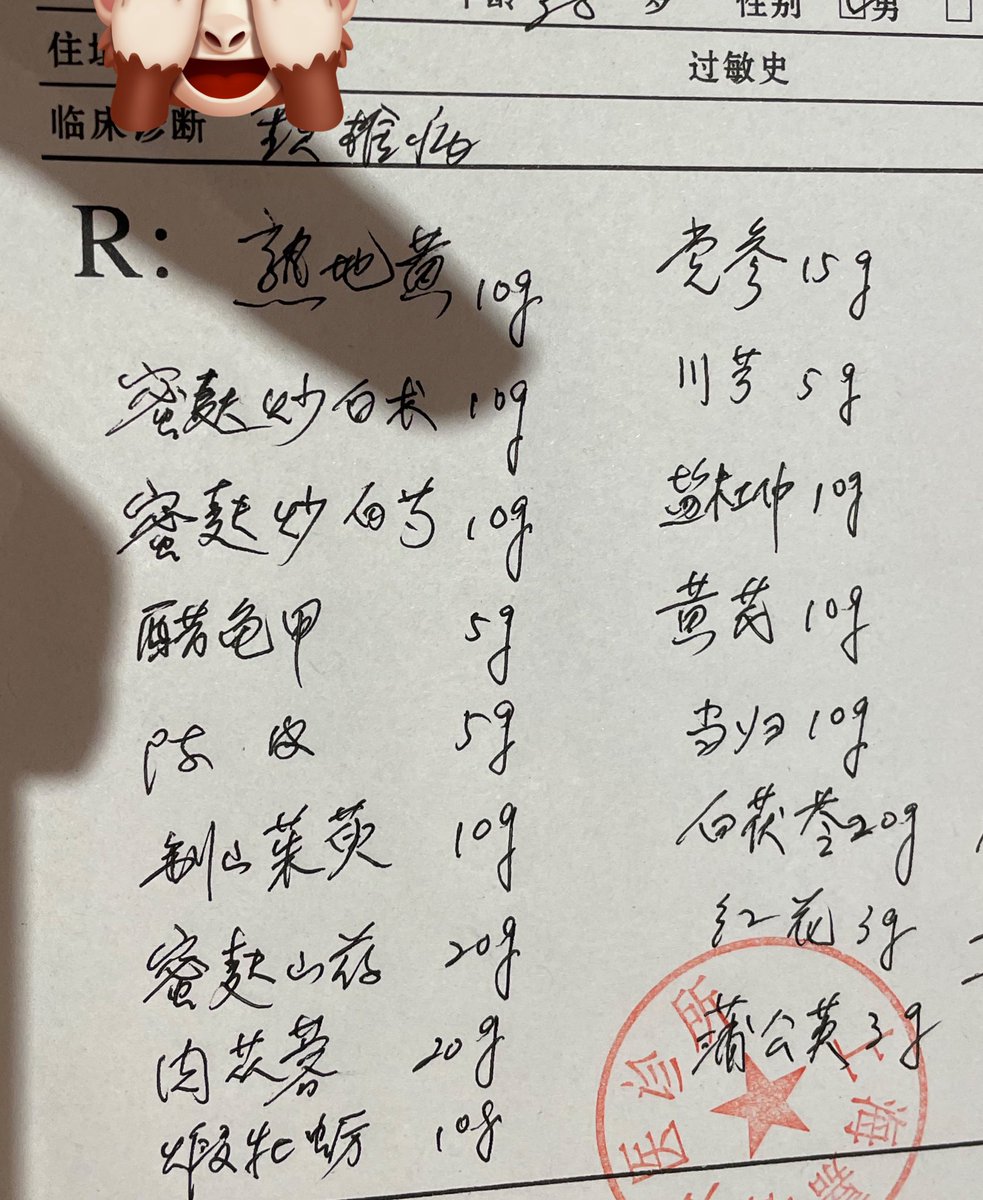 年龄 38 岁 性别 男
住址 过敏史
临床诊断 颈椎病
R: 熟地黄 10g 党参 15g
蜜麸炒白术 10g 川芎 5g
蜜麸炒白芍 10g 盐杜仲 10g
醋龟甲 5g 黄芪 10g
陈皮 5g 当归 10g
制山茱萸 10g 白茯苓 20g
蜜麸山药 20g 红花 3g
肉苁蓉 20g 蒲公英 3g
煅牡蛎 10g
上海嘉
医诊所